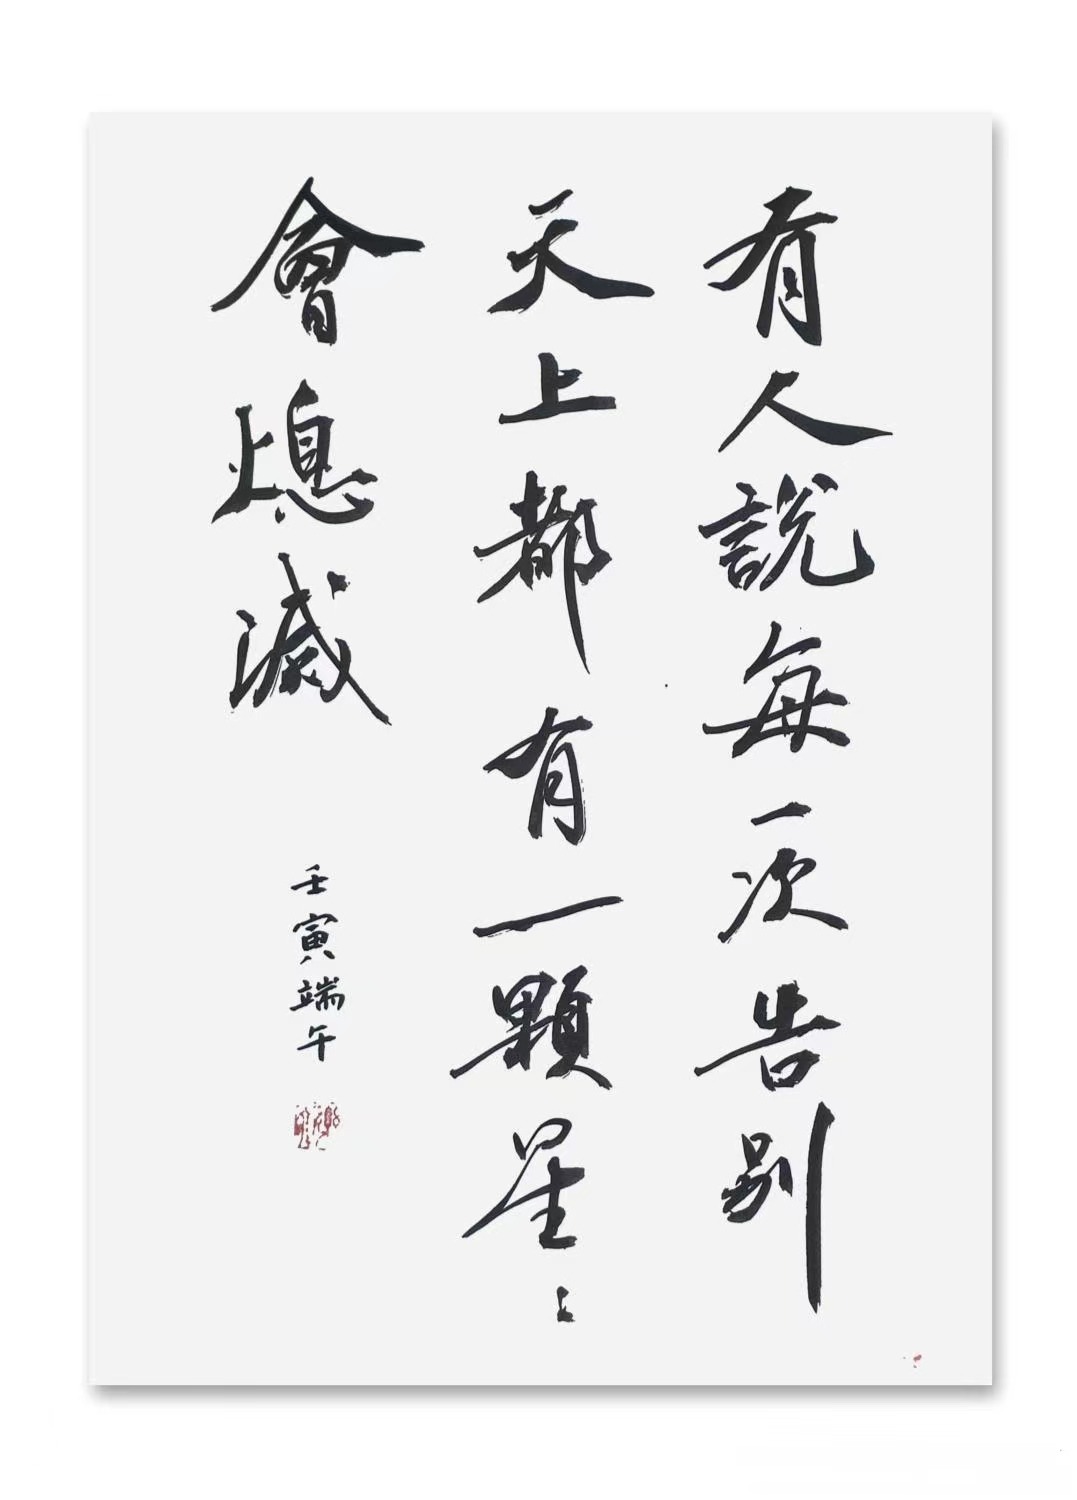 有人說每一次告別
天上都有一顆星〻
會熄滅
壬寅端午